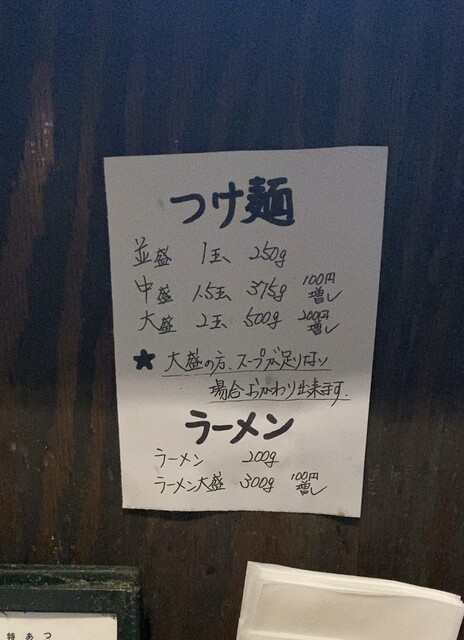 つけ麺
並盛 1玉 250g
中盛 1.5玉 375g 100円増し
大盛 2玉 500g 200円増し
★ 大盛の方、スープが足りない
場合おかわり出来ます。
ラーメン
ラーメン 200g
ラーメン大盛 300g 100円増し
特 あ つ